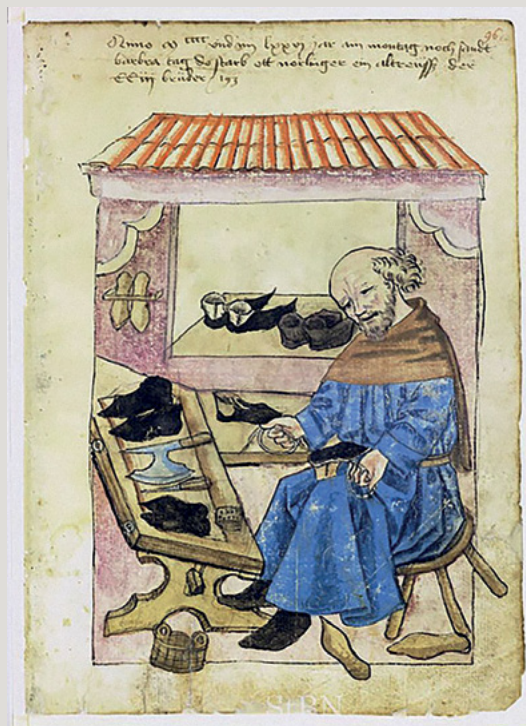 96.
Anno M cccc und im lxxvi jar am montag noch sandt
barbra tag do starb ott norlinger ein altreuß der
CC iii bruder 193
StBN